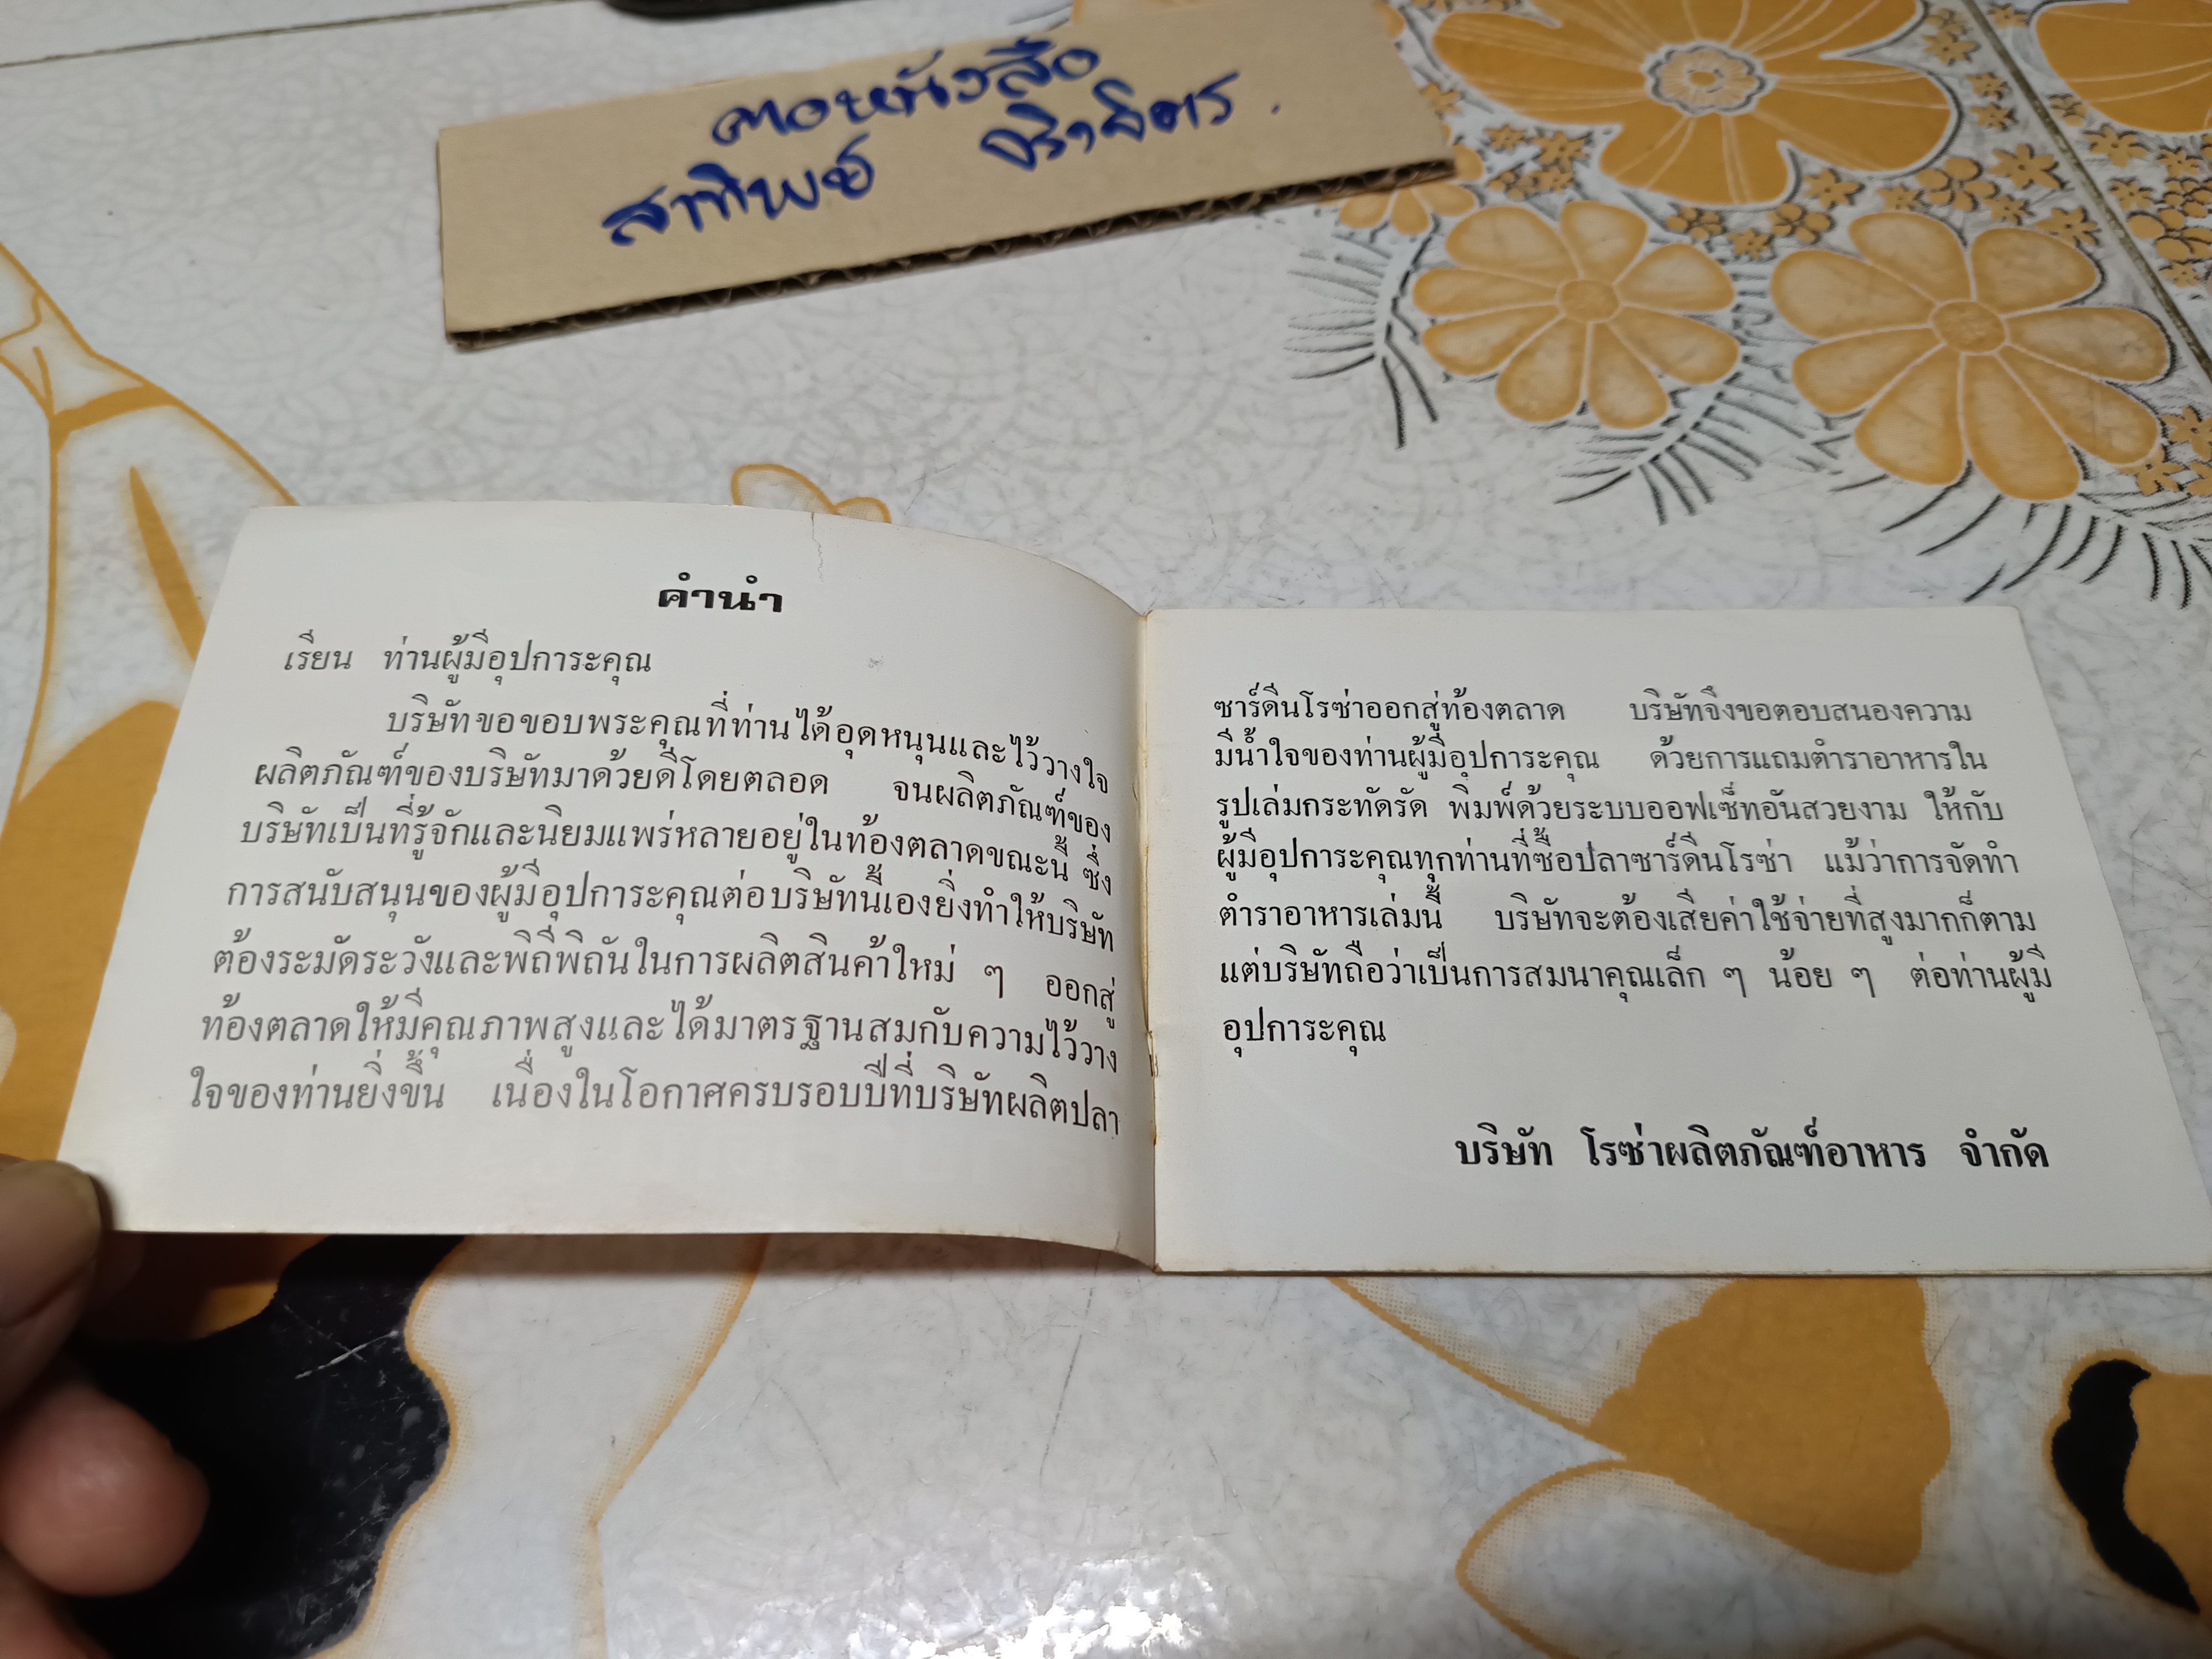 คอหนังสือ
สาทิพย์
คำนำ
เรียน ท่านผู้มีอุปการะคุณ
บริษัทขอขอบพระคุณที่ท่านได้อุดหนุนและไว้วางใจ
ผลิตภัณฑ์ของบริษัทมาด้วยดีโดยตลอด จนผลิตภัณฑ์ของ
บริษัทเป็นที่รู้จักและนิยมแพร่หลายอยู่ในท้องตลาดขณะนี้ ซึ่ง
การสนับสนุนของผู้มีอุปการะคุณต่อบริษัทนี้เองยิ่งทำให้บริษัท
ต้องระมัดระวังและพิถีพิถันในการผลิตสินค้าใหม่ ๆ ออกสู่
ท้องตลาดให้มีคุณภาพสูงและได้มาตรฐานสมกับความไว้วาง
ใจของท่านยิ่งขึ้น เนื่องในโอกาศครบรอบปีที่บริษัทผลิตปลา
ซาร์ดีนโรซ่าออกสู่ท้องตลาด บริษัทจึงขอตอบสนองความ
มีน้ำใจของท่านผู้มีอุปการะคุณ ด้วยการแถมตำราอาหารใน
รูปเล่มกระทัดรัด พิมพ์ด้วยระบบออฟเซ็ทอันสวยงาม ให้กับ
ผู้มีอุปการะคุณทุกท่านที่ซื้อปลาซาร์ดีนโรซ่า แม้ว่าการจัดทำ
ตำราอาหารเล่มนี้ บริษัทจะต้องเสียค่าใช้จ่ายที่สูงมากก็ตาม
แต่บริษัทถือว่าเป็นการสมนาคุณเล็ก ๆ น้อย ๆ ต่อท่านผู้มี
อุปการะคุณ
บริษัท โรซ่าผลิตภัณฑ์อาหาร จำกัด